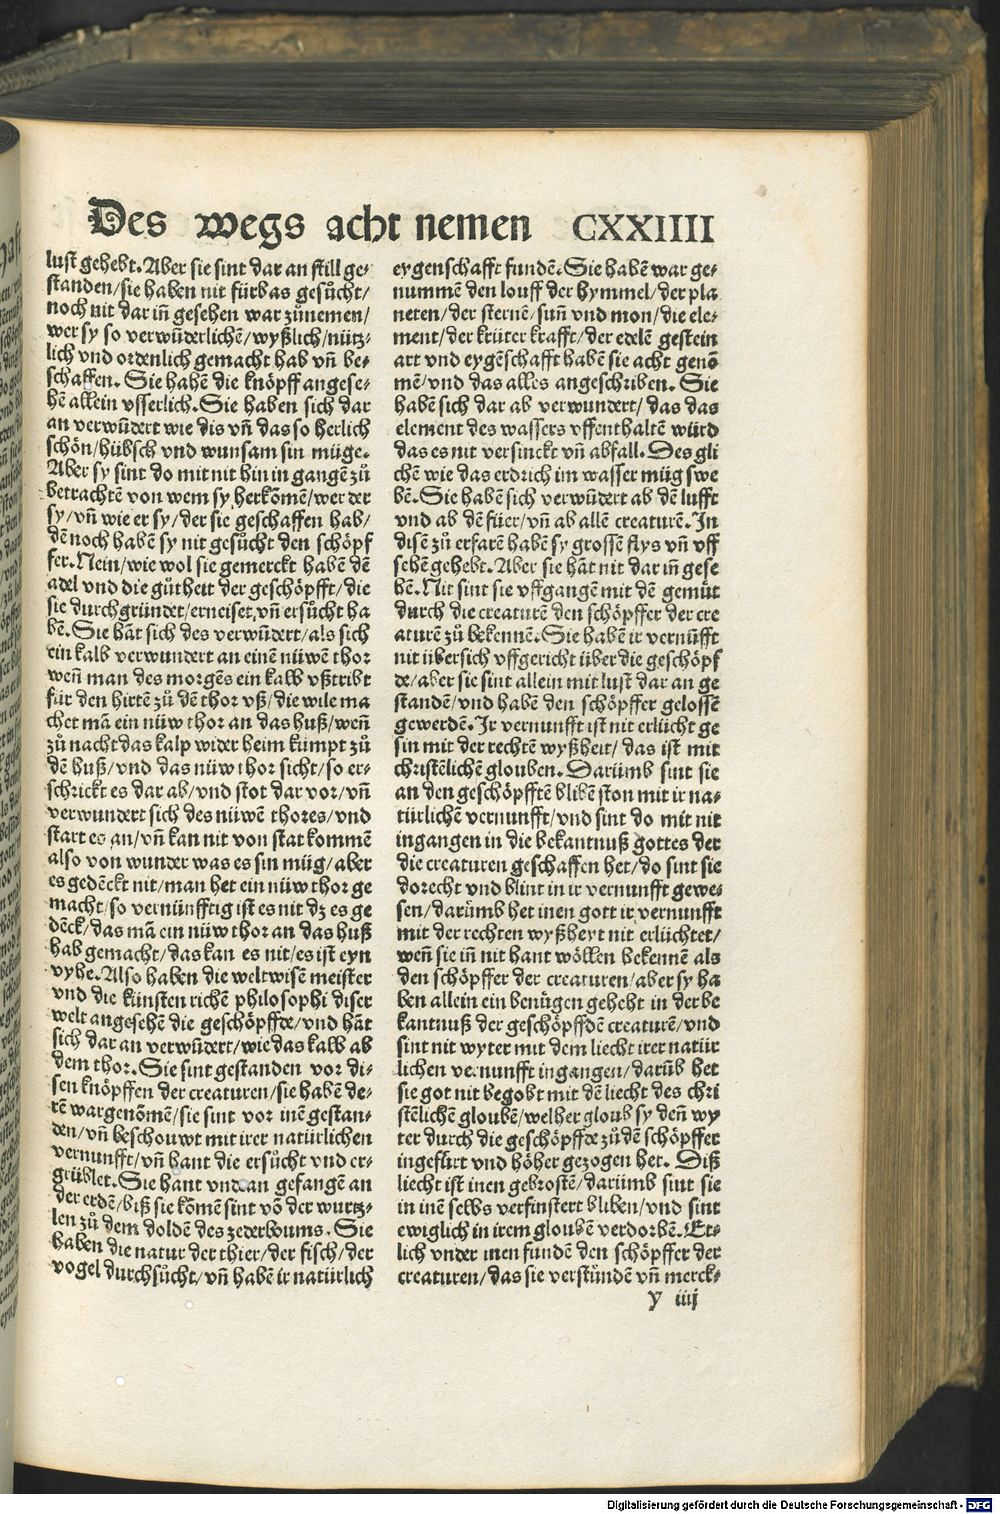 Des wegs acht nemen CXXIIII
lust gehebt. Aber sie sint dar an still ge-
standen/sie haben nit fürbas gesůcht/
noch nit dar iñ gesehen war zůnemen/
wer sy so verwũderlichẽ/wyßlich/nütz-
lich vnd ordenlich gemacht hab vñ be-
schaffen. Sie habẽ die knöpff angese-
hẽ allein vsserlich. Sie haben sich dar
an verwũdert wie dis vñ das so herlich
schön/hübsch vnd wunsam sin müge.
Aber sy sint do mit nit hin in gangẽ zů
betrachtẽ von wem sy herkõmẽ/wer der
sy/vñ wie er sy/der sie geschaffen hab/
dẽ noch habẽ sy nit gesůcht den schöpf
fer. Nein/wie wol sie gemerckt habẽ dẽ
adel vnd die gůtheit der geschöpfft/die
sie durchgründet/erneiset, vñ ersůcht ha
bẽ. Sie hãt sich des verwũdert/als sich
ein kalb verwundert an einẽ nüwẽ thor
weñ man des morgẽs ein kalb vßtribt
für den hirtẽ zů dẽ thor vß/die wile ma
chet mã ein nüw thor an das huß/weñ
zů nacht das kalp wider heim kumpt zů
dẽ huß/vnd das nüw thor sicht/so er-
schrickt es dar ab/vnd stot dar vor/vñ
verwundert sich des nüwẽ thores/vnd
start es an/vñ kan nit von stat kommẽ
also von wunder was es sin müg/aber
es gedẽckt nit/man het ein nüw thor ge
macht/so vernünfftig ist es nit dz es ge
dẽck/das mã ein nüw thor an das huß
hab gemacht/das kan es nit/es ist eyn
vyhe. Also haben die weltwisẽ meister
vnd die künsten richẽ philosophi diser
welt angesehẽ die geschöpffde/vnd hãt
sich dar an verwũdert/wie das kalb ab
dem thor. Sie sint gestanden vor di-
sen knöpffen der creaturen/sie habẽ de-
rẽ wargenõmẽ/sie sint vor inẽ gestan-
den/vñ beschouwt mit irer natürlichen
vernunfft/vñ hant die ersůcht vnd er-
grüblet. Sie hant vndan gefangẽ an
der erdẽ/biß sie kõmẽ sint võ der wurtz-
len zů dem dolden des zederboums. Sie
haben die natur der thier/der fisch/der
vogel durchsůcht/vñ habẽ ir natürlich
eygenschafft fundẽ. Sie habẽ war ge-
nummẽ den louff der hymmel/der pla
neten/der sternẽ/suñ vnd mon/die ele-
ment/der krüter krafft/der edelẽ gestein
art vnd eygẽschafft habẽ sie acht genõ
mẽ/vnd das alles angeschriben. Sie
habẽ sich dar ab verwundert/das das
element des wassers vffenthaltẽ würd
das es nit versinckt vñ abfall. Des gli
chẽ wie das erdrich im wasser müg swe
bẽ. Sie habẽ sich verwũdert ab dẽ lufft
vnd ab dẽ füer/vñ ab allẽ creaturẽ. In
disẽ zů erfarẽ habẽ sy grossẽ flys vñ vff
sehẽ gehebt. Aber sie hãt nit dar iñ gese
bẽ. Nit sint sie vffgangẽ mit dẽ gemüt
durch die creaturẽ den schöpffer der cre
aturẽ zů bekennẽ. Sie habẽ ir vernũfft
nit übersich vffgericht über die geschöpf
de/aber sie sint allein mit lust dar an ge
standẽ/vnd habẽ den schöpffer gelossẽ
gewerdẽ. Ir vernunfft ist nit erlücht ge
sin mit der rechtẽ wyßheit/das ist mit
christẽlichẽ glouben. Darümb sint sie
an den geschöpfftẽ blibẽ ston mit ir na-
türlichẽ vernunfft/vnd sint do mit nit
ingangen in die bekantnuß gottes der
die creaturen geschaffen het/do sint sie
dorecht vnd blint in ir vernunfft gewe-
sen/darümb het inen gott ir vernunfft
mit der rechten wyßheyt nit erlüchtet/
weñ sie iñ nit hant wöllen bekennẽ als
den schöpffer der creaturen/aber sy ha
ben allein ein benügen gehebt in der be
kantnuß der geschöpffdẽ creaturẽ/vnd
sint nit wyter mit dem liecht irer natür
lichen vernunfft ingangen/darũb het
sie got nit begobt mit dẽ liecht des chri
stẽlichẽ gloubẽ/welher gloub sy deñ wy
ter durch die geschöpffde zů dẽ schöpffer
ingefürt vnd höher gezogen het. Diß
liecht ist inen gebrostẽ/darümb sint sie
in inẽ selbs verfinstert bliben/vnd sint
ewiglich in irem gloubẽ verdorbẽ. Et-
lich vnder inen fundẽ den schöpffer der
creaturen/das sie verstündẽ vñ merck-
y iiij
Digitalisierung gefördert durch die Deutsche Forschungsgemeinschaft - DFG